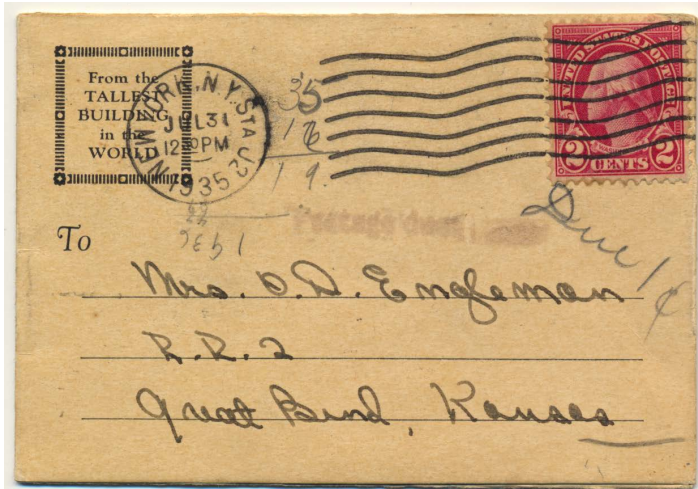 From the
TALLEST
BUILDING
in the
WORLD
NEW YORK, N.Y. STA J2
JUL 31
12 30 PM
1935
UNITED STATES POSTAGE
2 CENTS 2
35
16
19
1936
Postage due
Due 1¢
To
Mrs. O. D. Engleman
R. R. 2
Great Bend, Kansas